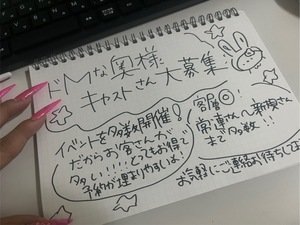 ドMな奥様
キャストさん大募集
イベントを多数開催!
だからお客さんが
多い!!!!どってもお得で
予約が埋まりやすいよ!
客層◎!
常連さん〜新規さん
まで多数!!
お気軽にご連絡お待ちしてま